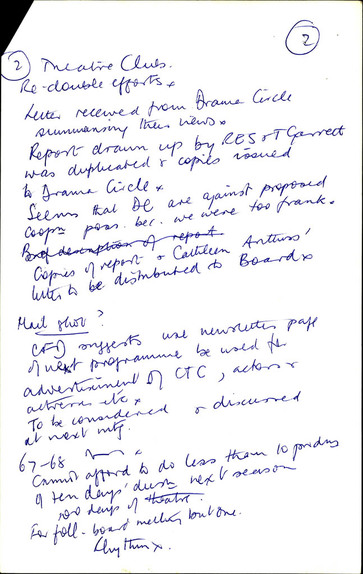 2
2 Theatre Clubs.
Re-double efforts x
Letter received from Drama Circle
summarising their views x
Report drawn up by RES & T Garrett
was duplicated & copies issued
to Drama Circle x
Seems that DC are against proposed
coopn poss. bec. we were too frank.
Brief description of report
Copies of report & Cathleen Arthurs'
letter to be distributed to Board x
Mail shot?
suggests use newsletter page
of next programme be used for
advertisement of CTC, actors &
actresses etc x
To be considered & discussed
at next mtg.
67-68
Cannot afford to do less than 10 prodns
of ten days' next season
100 days of theatre.
For foll. board meeting but one.